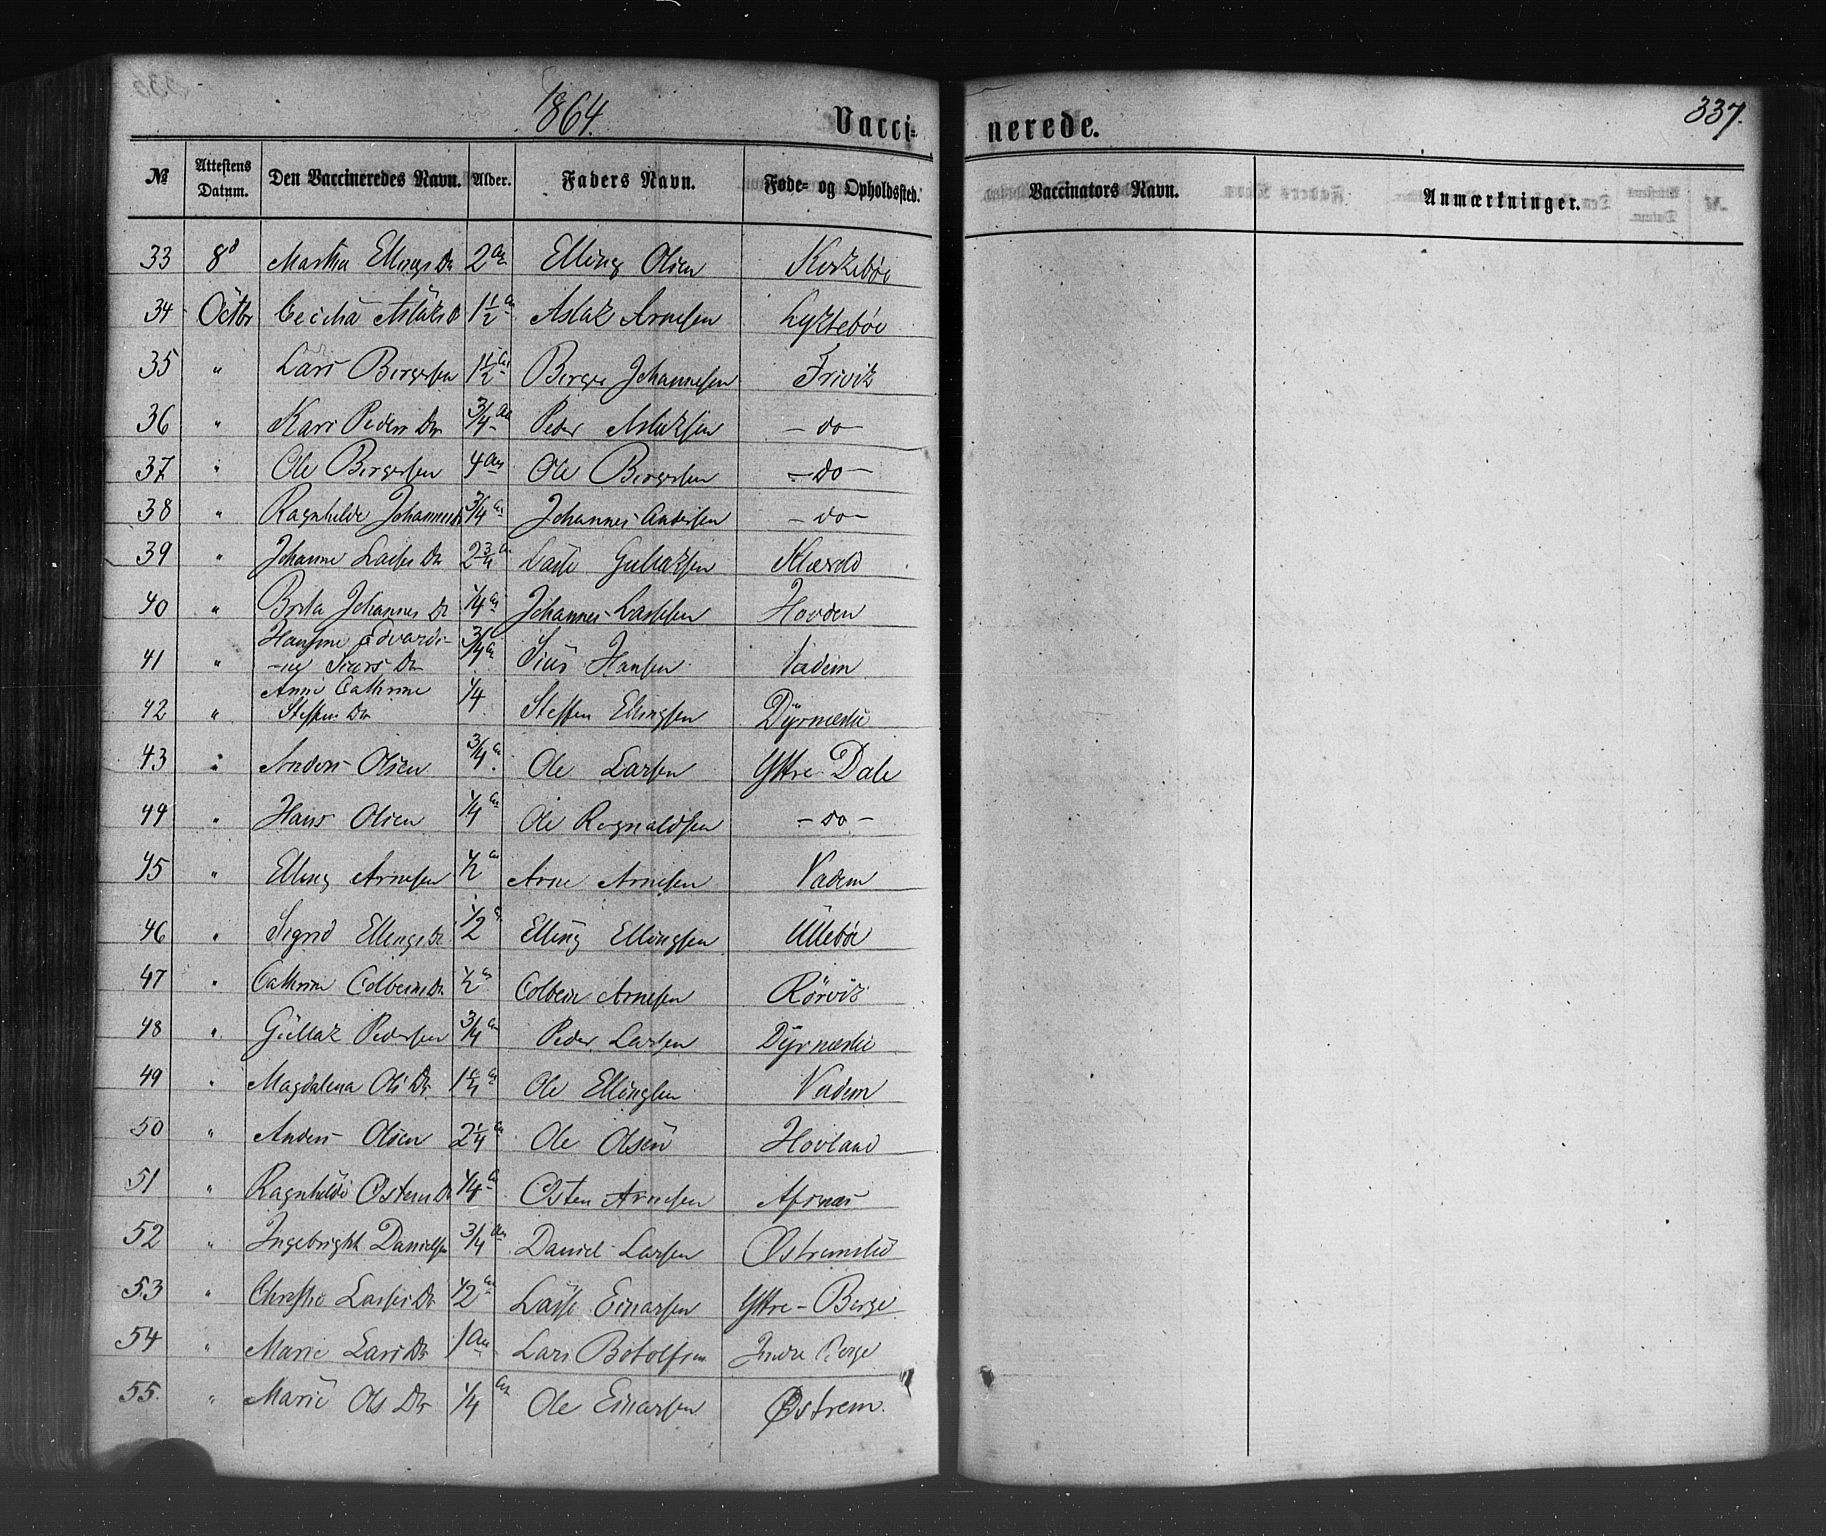 1864.
Vacci-
nerede.
337.
№ Attestens Datum. Den Vaccineredes Navn. Alder. Faders Navn. Føde- og Opholdssted. Vaccinators Navn. Anmærkninger.
33 8d Martha Ellings Dr 2 Aar Elling Olsen Kirkebøe
34 Octbr Cecilia Aslaks D 1 1/2 Aar Aslak Arnesen Lyktebøe
35 " Lars Bergesen 1 1/2 Aar Berge Johannesen Frivik
36 " Kari Peders Dr 3/4 Aar Peder Aslaksen - do -
37 " Ole Bergesen 4 Aar Ole Bergesen - do -
38 " Ragnhilde Johannes 3/4 Aar Johannes Andersen - do -
39 " Johanne Lasses Dr 2 3/4 Aar Lasse Gullaksen Klævold
40 " Brita Johannes Dr 1/4 Aar Johannes Lassesen Hovden
41 " Hansine Edvardi-
-ne Siurs Dr 3/4 Aar Siur Hansen Vadem
42 " Anne Cathrine
Steffens Dr 1/4 Steffen Ellingsen Dyrneslie
43 " Anders Olsen 3/4 Aar Ole Larsen Yttre Dale
44 " Hans Olsen 1/4 Aar Ole Rognaldsen - do -
45 " Elling Arnesen 1/2 Aar Arne Arnesen Vadem
46 " Sigrid Ellings Dr 1/2 Aar Elling Ellingsen Ullebøe
47 " Cathrine Colbeins Dr 1/2 Aar Colbein Arnesen Rørvik
48 " Gullak Pedersen 3/4 Aar Peder Larsen Dyrneslie
49 " Magdalena Ols Dr 1 1/4 Aar Ole Ellingsen Vadem
50 " Anders Olsen 2 1/4 Aar Ole Olsen Hovland
51 " Ragnhilde Ostens Dr 1/4 Aar Osten Arnesen Afsnæs
52 " Ingebright Danielsen 3/4 Aar Daniel Larsen Østremslid
53 " Christie Lasses Dr 1/2 Aar Lasse Einarsen Yttre-Berge
54 " Marie Lars Dr 1 Aar Lars Botolfsen Indre Berge
55. " Marie Ols Dr 1/4 Aar Ole Einarsen Østrem.